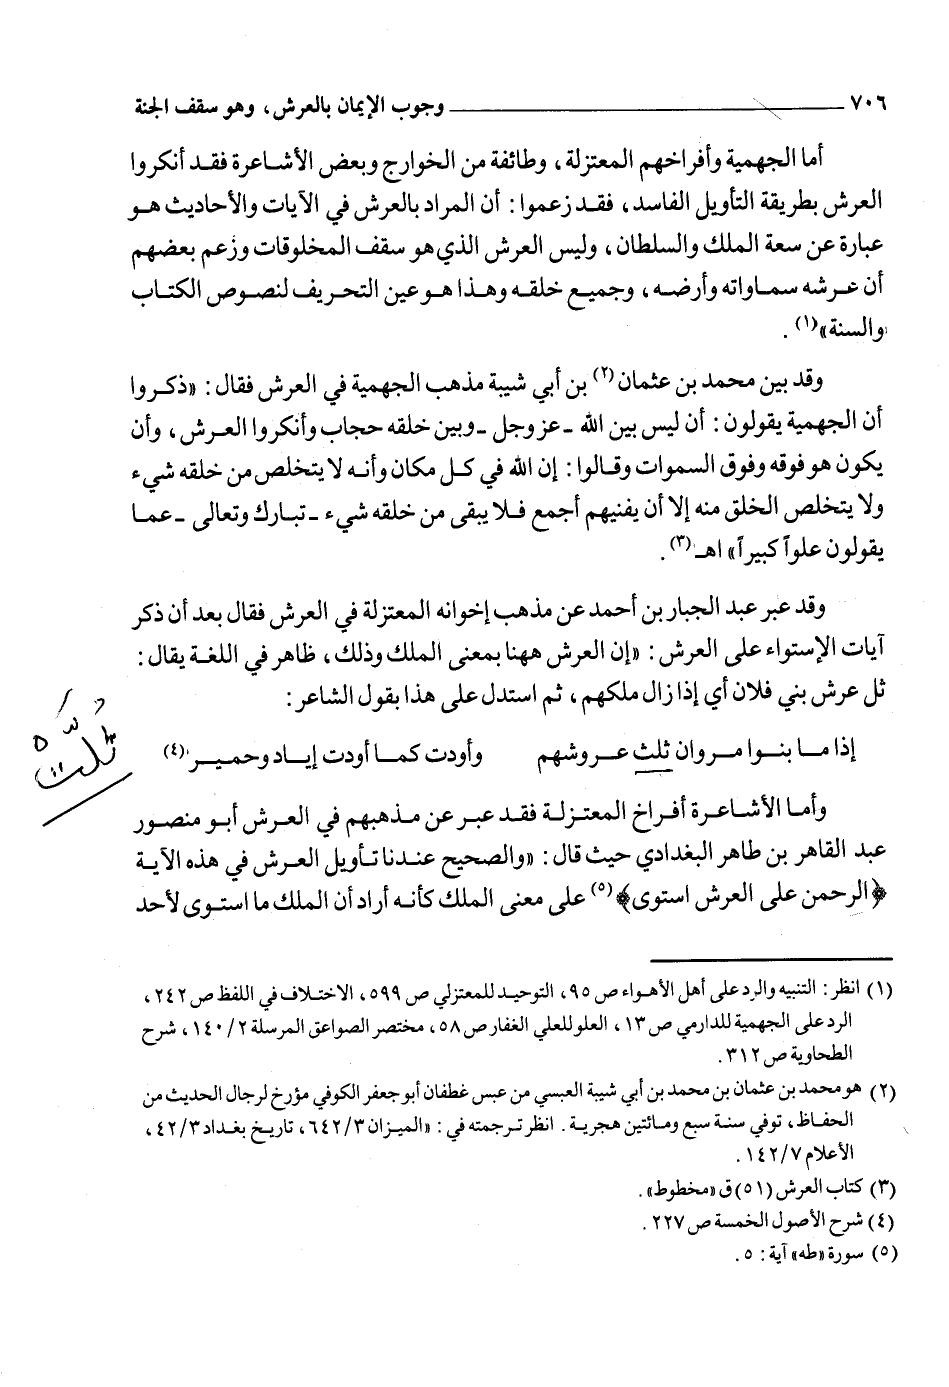 ٧٠٦ وجوب الإيمان بالعرش، وهو سقف الجنة
أما الجهمية وأفراخهم المعتزلة، وطائفة من الخوارج وبعض الأشاعرة فقد أنكروا
العرش بطريقة التأويل الفاسد، فقد زعموا: أن المراد بالعرش في الآيات والأحاديث هو
عبارة عن سعة الملك والسلطان، وليس العرش الذي هو سقف المخلوقات وزعم بعضهم
أن عرشه سماواته وأرضه، وجميع خلقه وهذا هو عين التحريف لنصوص الكتاب
والسنة»(١).
وقد بين محمد بن عثمان(٢) بن أبي شيبة مذهب الجهمية في العرش فقال: «ذكروا
أن الجهمية يقولون: أن ليس بين الله ـ عز وجل ـ وبين خلقه حجاب وأنكروا العرش، وأن
يكون هو فوقه وفوق السموات وقالوا: إن الله في كل مكان وأنه لا يتخلص من خلقه شيء
ولا يتخلص الخلق منه إلا أن يفنيهم أجمع فلا يبقى من خلقه شيء ـ تبارك وتعالى ـ عما
يقولون علواً كبيراً» اهـ(٣).
وقد عبر عبد الجبار بن أحمد عن مذهب إخوانه المعتزلة في العرش فقال بعد أن ذكر
آيات الإستواء على العرش: «إن العرش ههنا بمعنى الملك وذلك، ظاهر في اللغة يقال:
ثل عرش بني فلان أي إذا زال ملكهم، ثم استدل على هذا بقول الشاعر:
إذا ما بنوا مروان ثلث عروشهم وأودت كما أودت إياد وحمير(٤)
ثُلَّتْ
وأما الأشاعرة أفراخ المعتزلة فقد عبر عن مذهبهم في العرش أبو منصور
عبد القاهر بن طاهر البغدادي حيث قال: «والصحيح عندنا تأويل العرش في هذه الآية
﴿الرحمن على العرش استوى﴾(٥) على معنى الملك كأنه أراد أن الملك ما استوى لأحد
(١) انظر: التنبيه والرد على أهل الأهواء ص ٩٥، التوحيد للمعتزلي ص ٥٩٩، الاختلاف في اللفظ ص ٢٤٢،
الرد على الجهمية للدارمي ص ١٣، العلو للعلي الغفار ص ٥٨، مختصر الصواعق المرسلة ٢/ ١٤٠، شرح
الطحاوية ص ٣١٢.
(٢) هو محمد بن عثمان بن محمد بن أبي شيبة العبسي من عبس غطفان أبو جعفر الكوفي مؤرخ لرجال الحديث من
الحفاظ، توفي سنة سبع ومائتين هجرية. انظر ترجمته في: «الميزان ٣/ ٦٤٢، تاريخ بغداد ٣/ ٤٢،
الأعلام ٧/ ١٤٢.
(٣) كتاب العرش (٥١) ق «مخطوط».
(٤) شرح الأصول الخمسة ص ٢٢٧.
(٥) سورة «طه» آية: ٥.